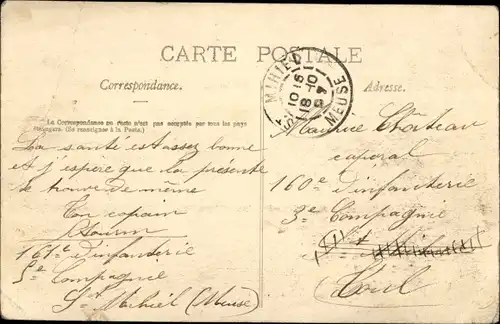 CARTE POSTALE
Correspondance.
Adresse.
La Correspondance au recto n'est pas acceptée par tous les pays
étrangers. (Se renseigner à la Poste.)
MIHIEL
10 15
18 - 10
MEUSE
La santé est assez bonne
et j'espère que la présente
te trouve de même
Ton copain
161e d'infanterie
5e Compagnie
St Mihiel (Meuse)
Maurice
caporal
160e d'infanterie
3e Compagnie
Toul